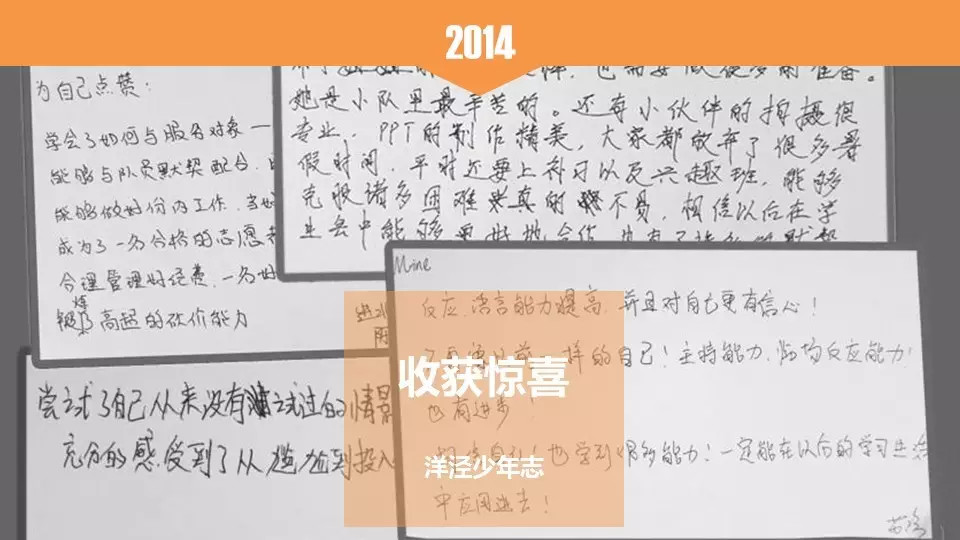 2014
为自己点赞：
学会了如何与服务对象一
能够与队员默契配合，
能够做好份内工作，
成为了一名合格的志愿者
合理管理好经费，一名
锻炼了高超的砍价能力
她是小队里最辛苦的。还有小伙伴的拍摄很
专业，PPT的制作精美，大家都放弃了很多暑
假时间，平时还要上补习以及兴趣班，能够
克服诸多困难 真的 不易，相信以后在学
业去中能够更好地合作
尝试了自己从来没有 试过的情景
充分的感受到了从尴尬到投入
Mine
反应、语言能力提高，并且对自己更有信心！
一样的自己！主持能力、临场反应能力
也有进步！
也学到很多能力！一定能在以后的学习生活
中应用进去！
收获惊喜
洋泾少年志